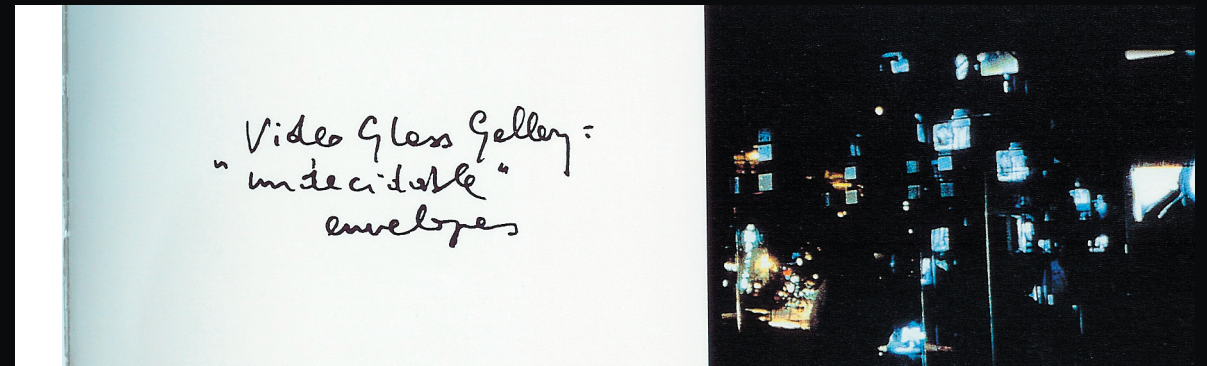 Video Glass Gallery:
"undecidable"
envelopes